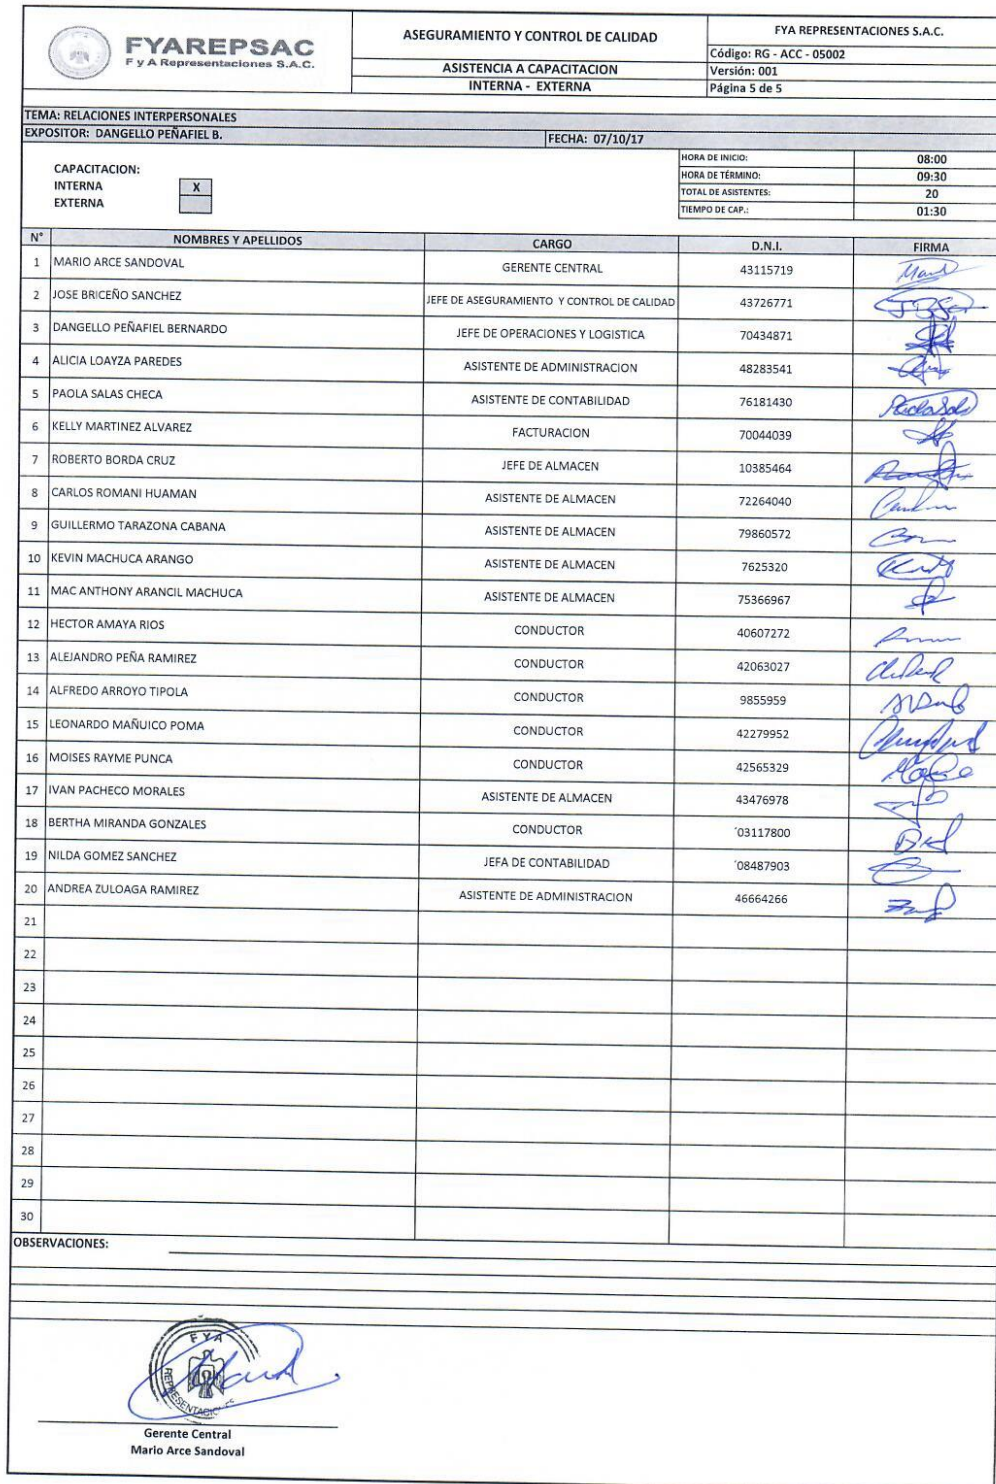 FYAREPSAC
F y A Representaciones S.A.C.
ASEGURAMIENTO Y CONTROL DE CALIDAD
ASISTENCIA A CAPACITACION
INTERNA - EXTERNA
FYA REPRESENTACIONES S.A.C.
Código: RG - ACC - 05002
Versión: 001
Página 5 de 5
TEMA: RELACIONES INTERPERSONALES
EXPOSITOR: DANGELLO PEÑAFIEL B. FECHA: 07/10/17
CAPACITACION:
INTERNA X
EXTERNA
HORA DE INICIO: 08:00
HORA DE TÉRMINO: 09:30
TOTAL DE ASISTENTES: 20
TIEMPO DE CAP.: 01:30
N° NOMBRES Y APELLIDOS CARGO D.N.I. FIRMA
1 MARIO ARCE SANDOVAL GERENTE CENTRAL 43115719
2 JOSE BRICEÑO SANCHEZ JEFE DE ASEGURAMIENTO Y CONTROL DE CALIDAD 43726771
3 DANGELLO PEÑAFIEL BERNARDO JEFE DE OPERACIONES Y LOGISTICA 70434871
4 ALICIA LOAYZA PAREDES ASISTENTE DE ADMINISTRACION 48283541
5 PAOLA SALAS CHECA ASISTENTE DE CONTABILIDAD 76181430
6 KELLY MARTINEZ ALVAREZ FACTURACION 70044039
7 ROBERTO BORDA CRUZ JEFE DE ALMACEN 10385464
8 CARLOS ROMANI HUAMAN ASISTENTE DE ALMACEN 72264040
9 GUILLERMO TARAZONA CABANA ASISTENTE DE ALMACEN 79860572
10 KEVIN MACHUCA ARANGO ASISTENTE DE ALMACEN 7625320
11 MAC ANTHONY ARANCIL MACHUCA ASISTENTE DE ALMACEN 75366967
12 HECTOR AMAYA RIOS CONDUCTOR 40607272
13 ALEJANDRO PEÑA RAMIREZ CONDUCTOR 42063027
14 ALFREDO ARROYO TIPOLA CONDUCTOR 9855959
15 LEONARDO MAÑUICO POMA CONDUCTOR 42279952
16 MOISES RAYME PUNCA CONDUCTOR 42565329
17 IVAN PACHECO MORALES ASISTENTE DE ALMACEN 43476978
18 BERTHA MIRANDA GONZALES CONDUCTOR ´03117800
19 NILDA GOMEZ SANCHEZ JEFA DE CONTABILIDAD ´08487903
20 ANDREA ZULOAGA RAMIREZ ASISTENTE DE ADMINISTRACION 46664266
21
22
23
24
25
26
27
28
29
30
OBSERVACIONES:
FYA
REPRESENTACIONES
Gerente Central
Mario Arce Sandoval